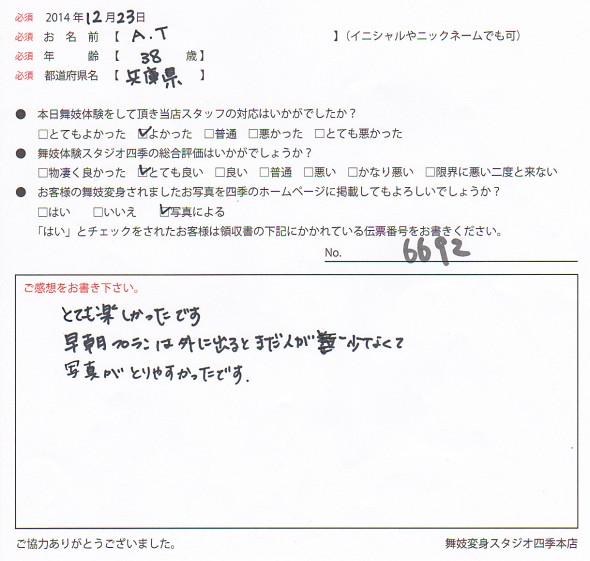 必須 2014年12月23日
必須 お名前【 A.T 】(イニシャルやニックネームでも可)
必須 年齢【 38 歳】
必須 都道府県名【 兵庫県 】
● 本日舞妓体験をして頂き当店スタッフの対応はいかがでしたか?
□とてもよかった ☑よかった □普通 □悪かった □とても悪かった
● 舞妓体験スタジオ四季の総合評価はいかがでしょうか?
□物凄く良かった ☑とても良い □良い □普通 □悪い □かなり悪い □限界に悪い二度と来ない
● お客様の舞妓変身されましたお写真を四季のホームページに掲載してもよろしいでしょうか?
□はい □いいえ ☑写真による
「はい」とチェックをされたお客様は領収書の下記にかかれている伝票番号をお書きください。
No. 6692
ご感想をお書き下さい。
とても楽しかったです
早朝プランは外に出るとまだ人が少なくて
写真がとりやすかったです.
ご協力ありがとうございました。
舞妓変身スタジオ四季本店